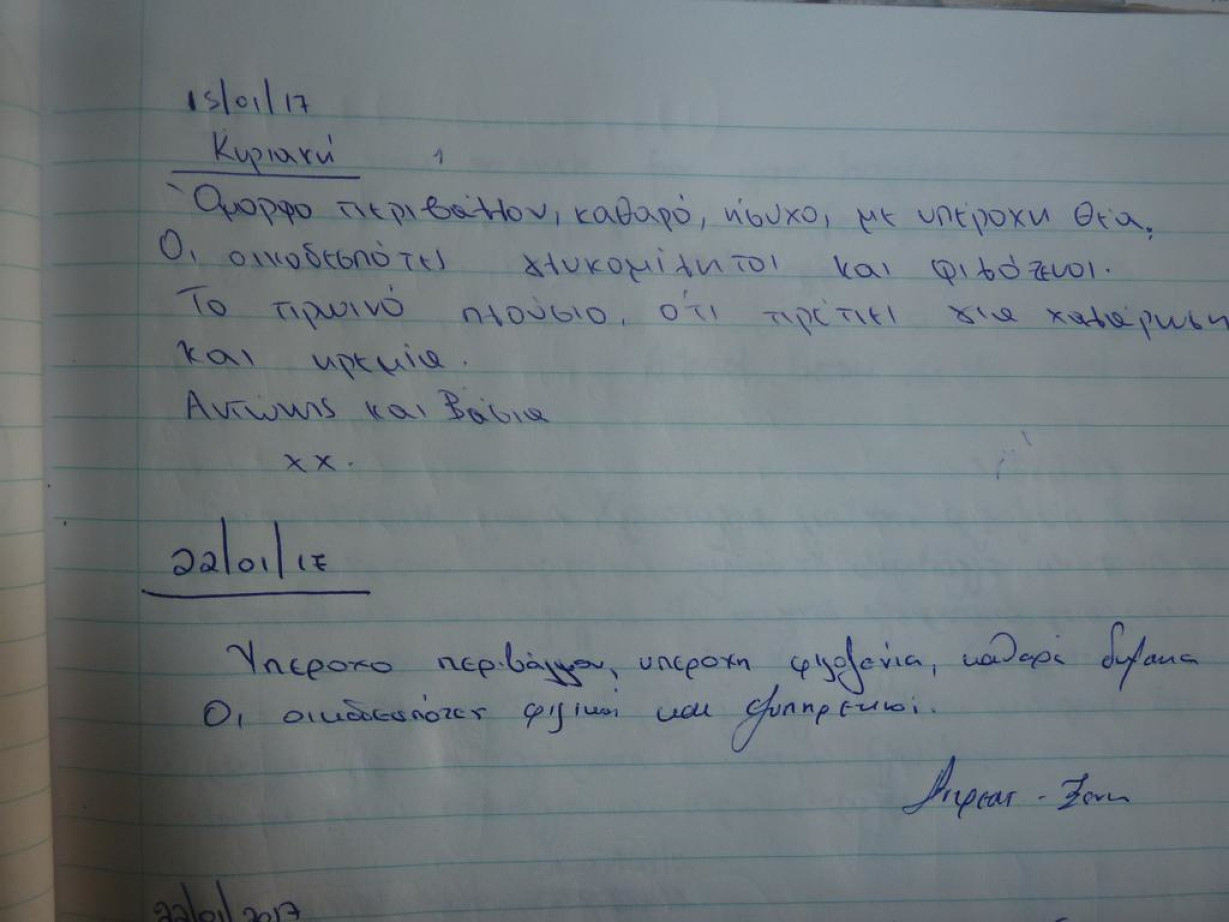 15/01/17
Κυριακή
Όμορφο περιβάλλον, καθαρό, ήσυχο, με υπέροχη θέα.
Οι οικοδεσπότες γλυκομίλητοι και φιλόξενοι.
Το πρωινό πλούσιο, ότι πρέπει για χαλάρωση
και ηρεμία.
Αντώνης και Βάσια
xx.
22/01/17
Υπέροχο περιβάλλον, υπέροχη φιλοξενία, καθαρά δωμάτια
Οι οικοδεσπότες φιλικοί και εξυπηρετικοί.
22/01/2017